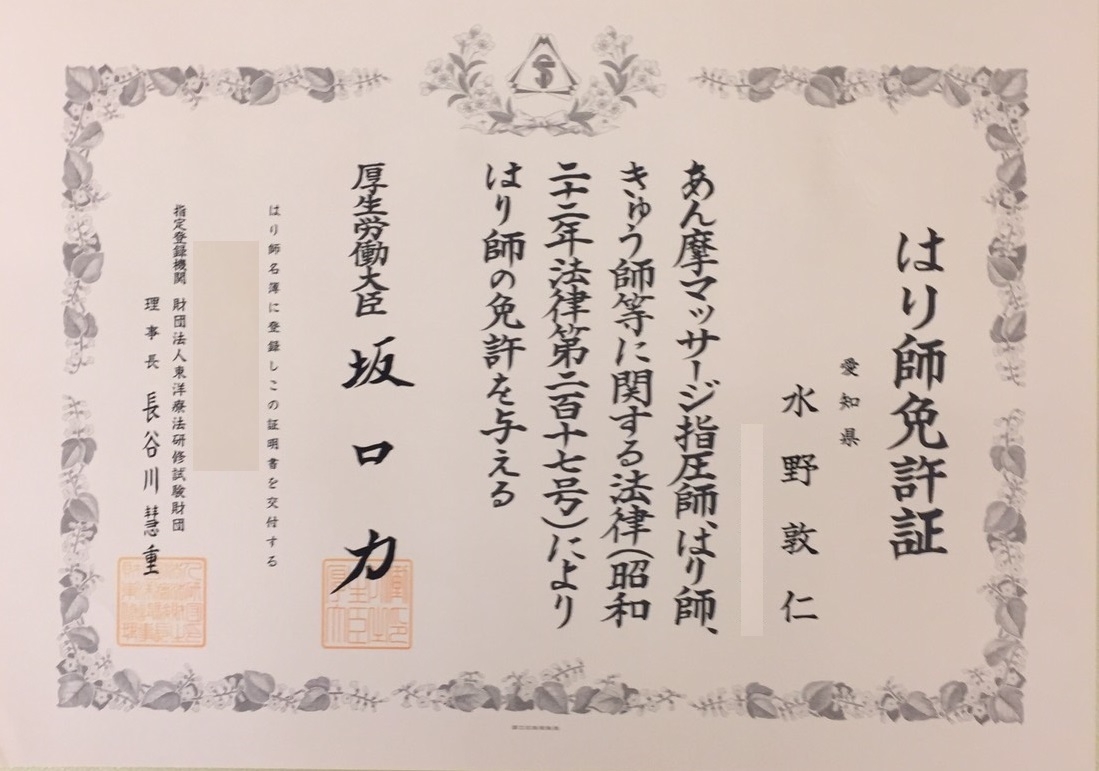 はり師免許証
愛知県
水野敦仁
あん摩マッサージ指圧師、はり師、
きゅう師等に関する法律(昭和
二十二年法律第二百十七号)により
はり師の免許を与える
厚生労働大臣 坂口力
はり師名簿に登録しこの証明書を交付する
指定登録機関 財団法人東洋療法研修試験財団
理事長 長谷川慧重